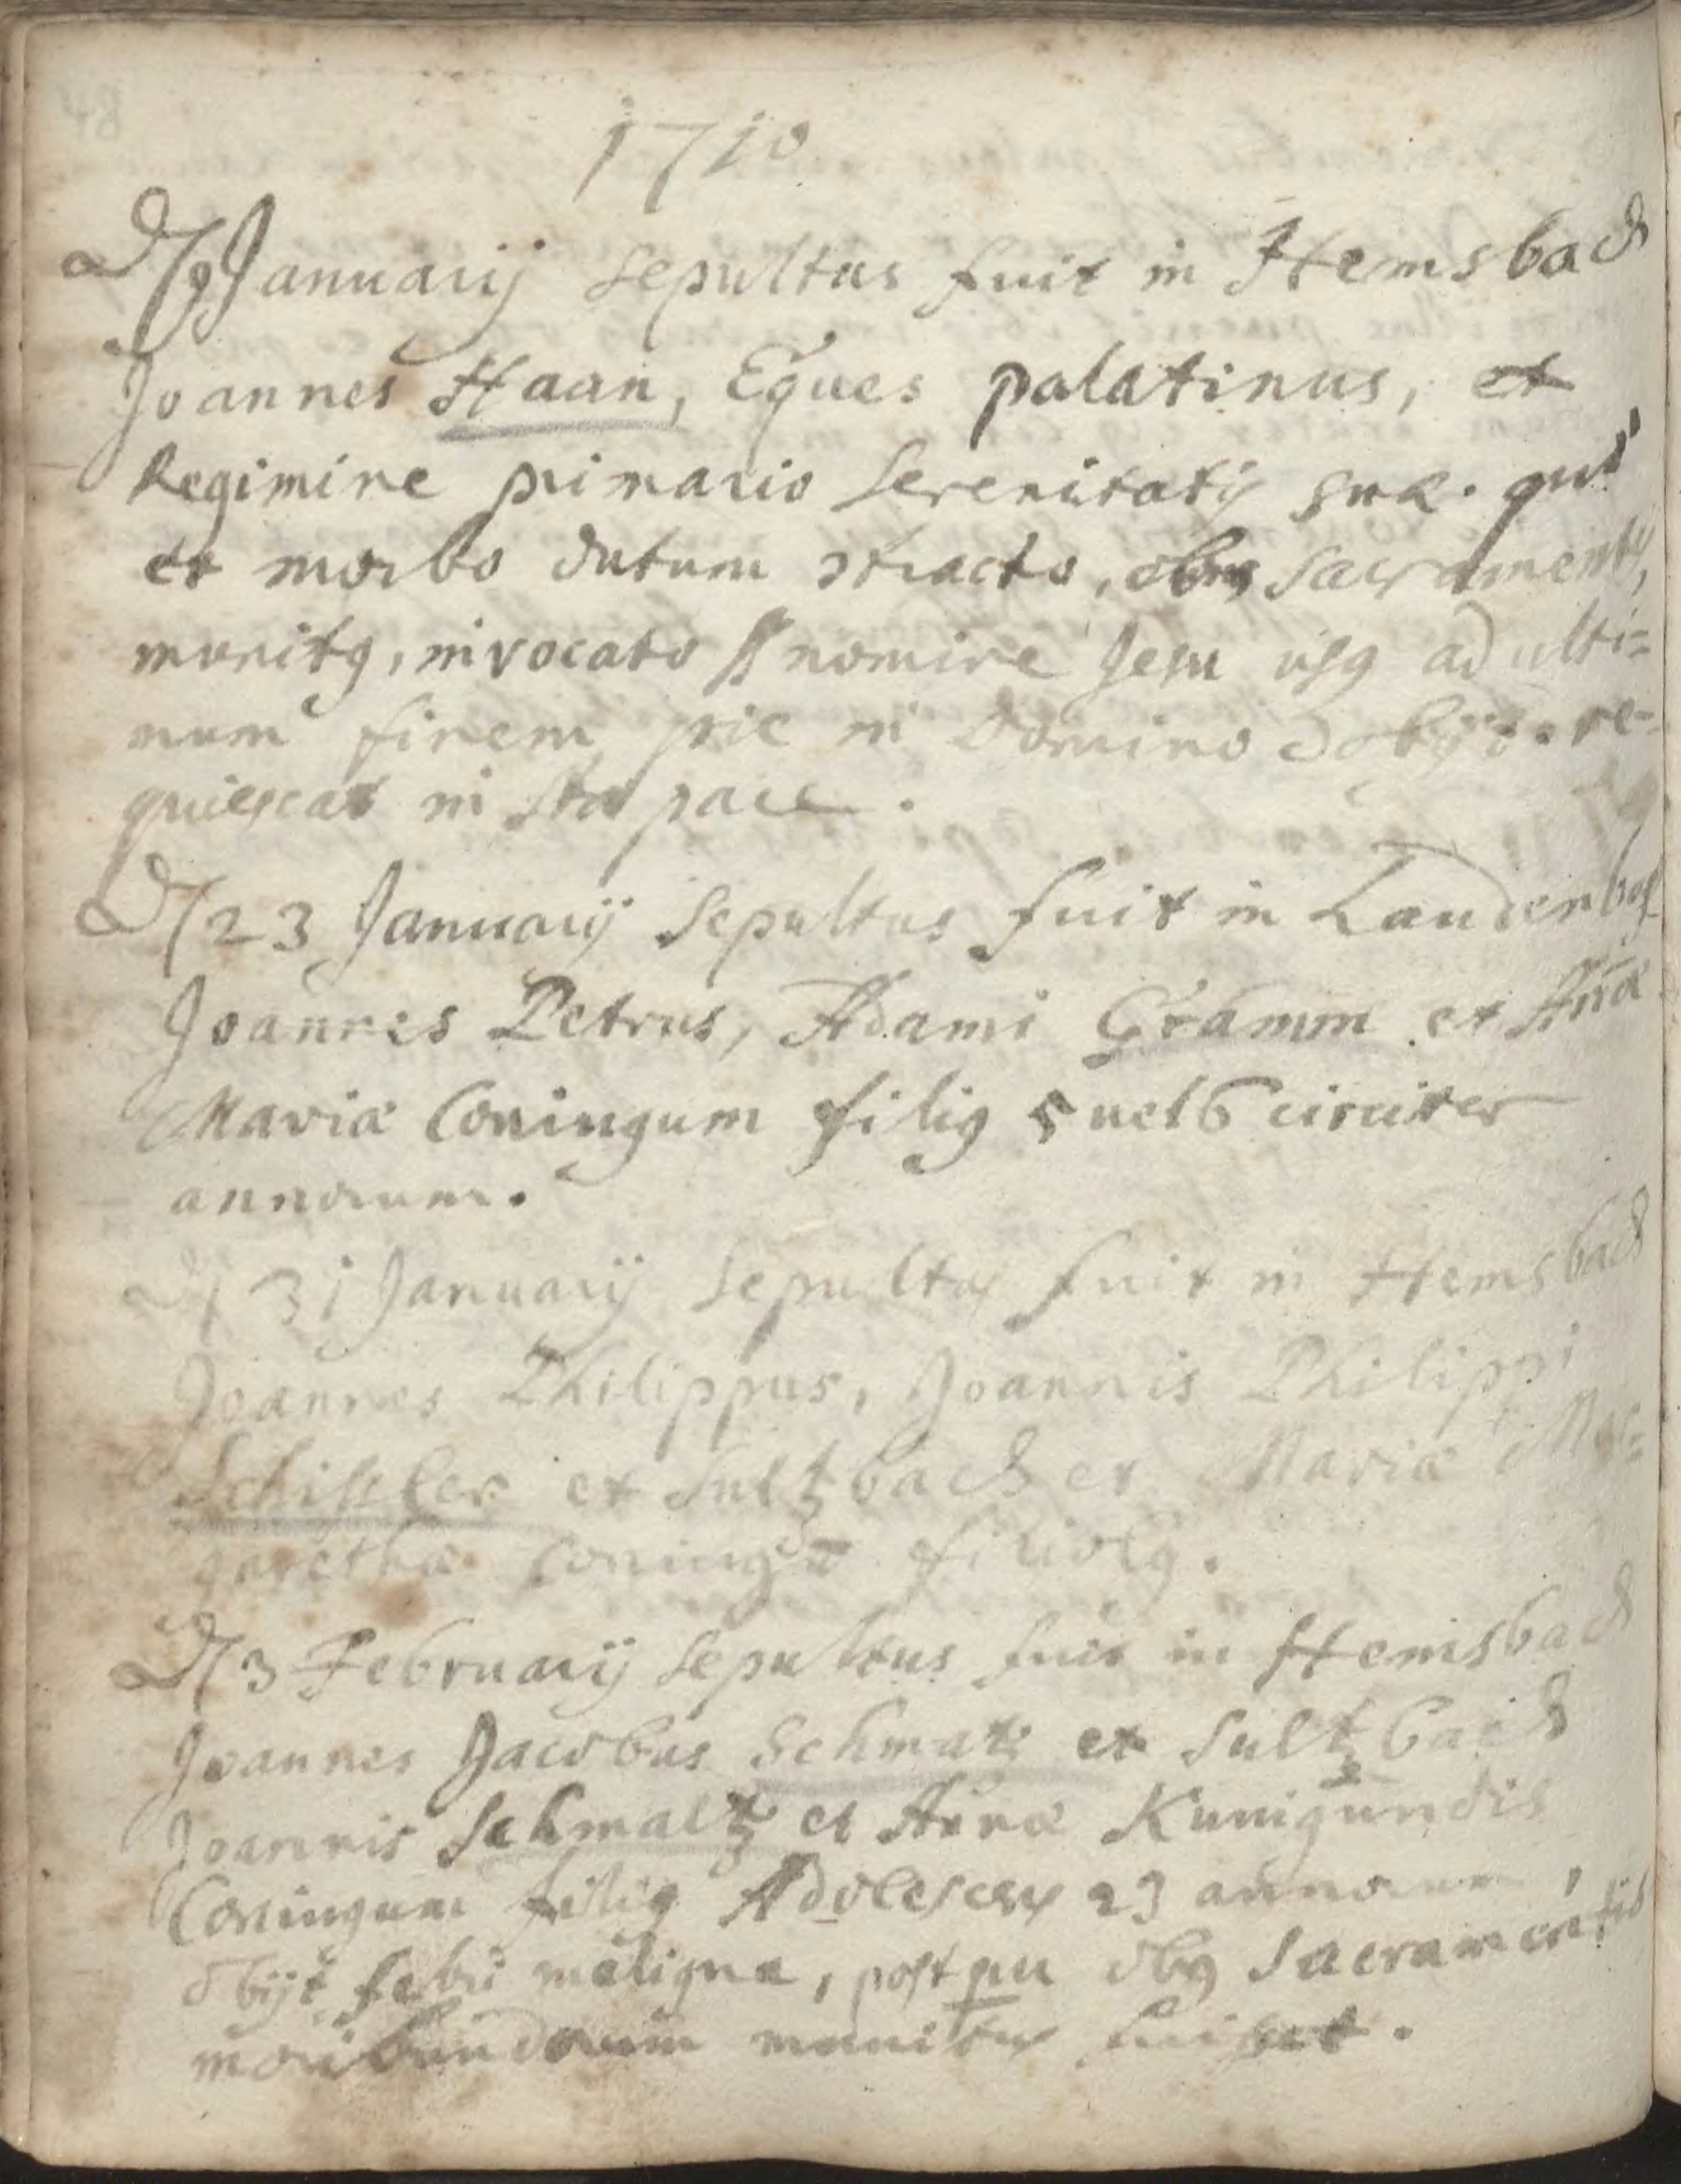 48
1710
D 9 Januarij sepultus fuit in Hemsbach
Joannes Haan, Eques palatinus, ex
Regimine primario Serenitatis suæ. qui
ex morbo diutum 9tracto, obus sacramentis,
munitꝯ, invocato nomine Jesu usqꝫ ad ulti=
mum finem pie in Domino obijt. re=
quiescat in sta pace.
D 23 Januarij sepultus fuit in Laudenbach
Joannes Petrus, Adami Gramm et Annæ
Mariæ Coniugum filiꝯ 5 vel 6 circiter
annorum.
D 31 Januarij sepultus fuit in Hemsbach
Joannes Philippus, Joannis Philippi
Schissler ex Sultzbach et Mariæ Mar=
garethæ Coniugū filiolꝯ.
D 3 Februarij sepultus fuit in Hemsbach
Joannes Jacobus Schmatz ex Sultzbach
Joannis Schmaltz et Annæ Kunigundis
Coniugum filiꝯ Adolescens 23 annorum,
obijt febri maligna, postqu obꝯ Sacramentis
moribundorum munitus fuisset.